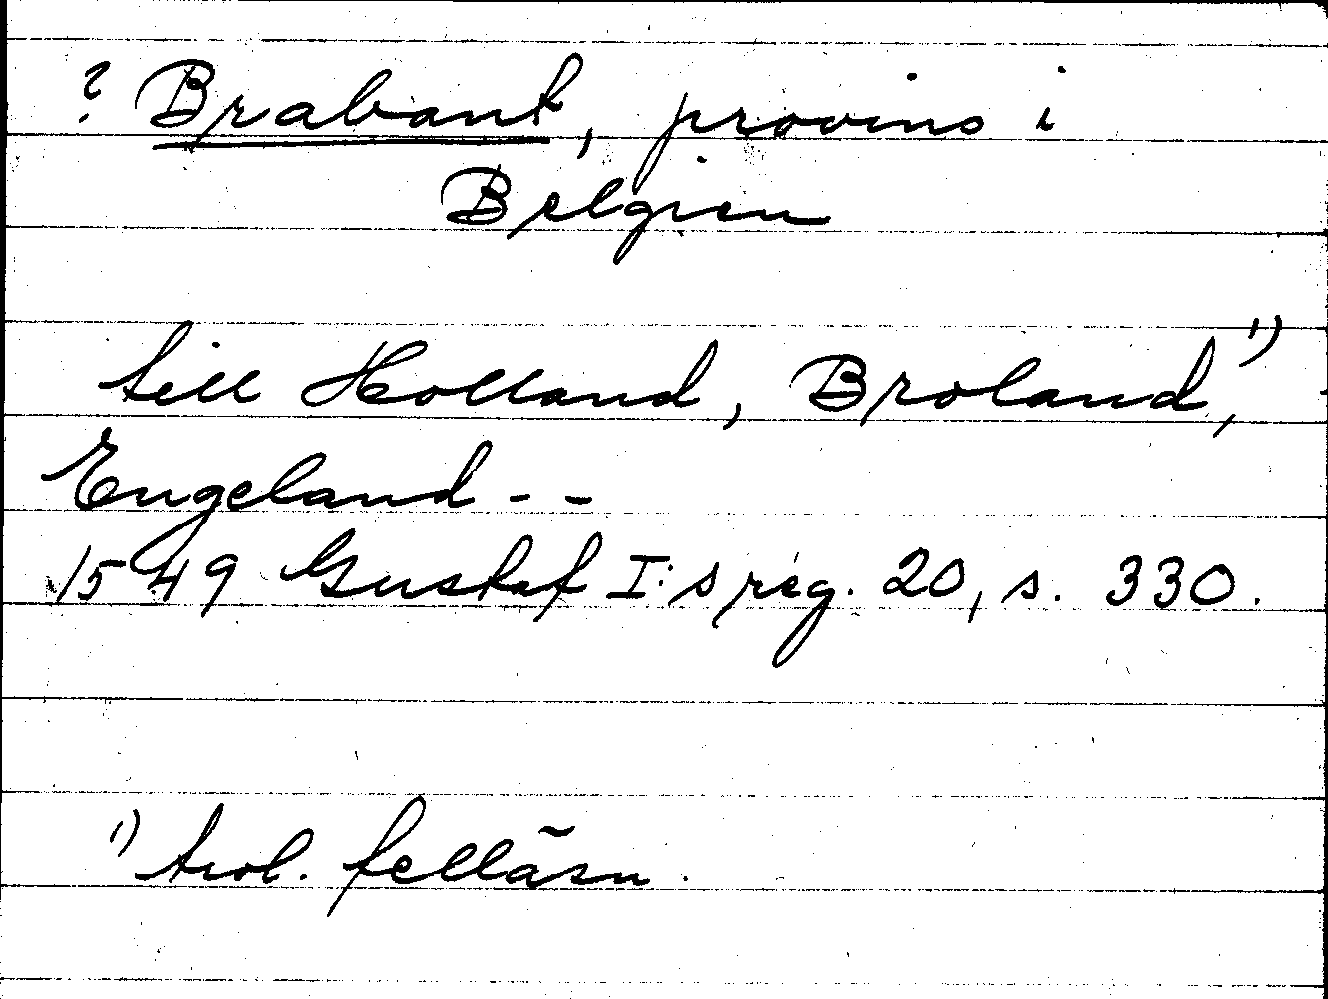 ? Brabant, provins i
Belgien
till Holland, Broland, ¹)
Engeland - -
1549 Gustaf I:s reg. 20, s. 330.
¹) trol. felläsn.